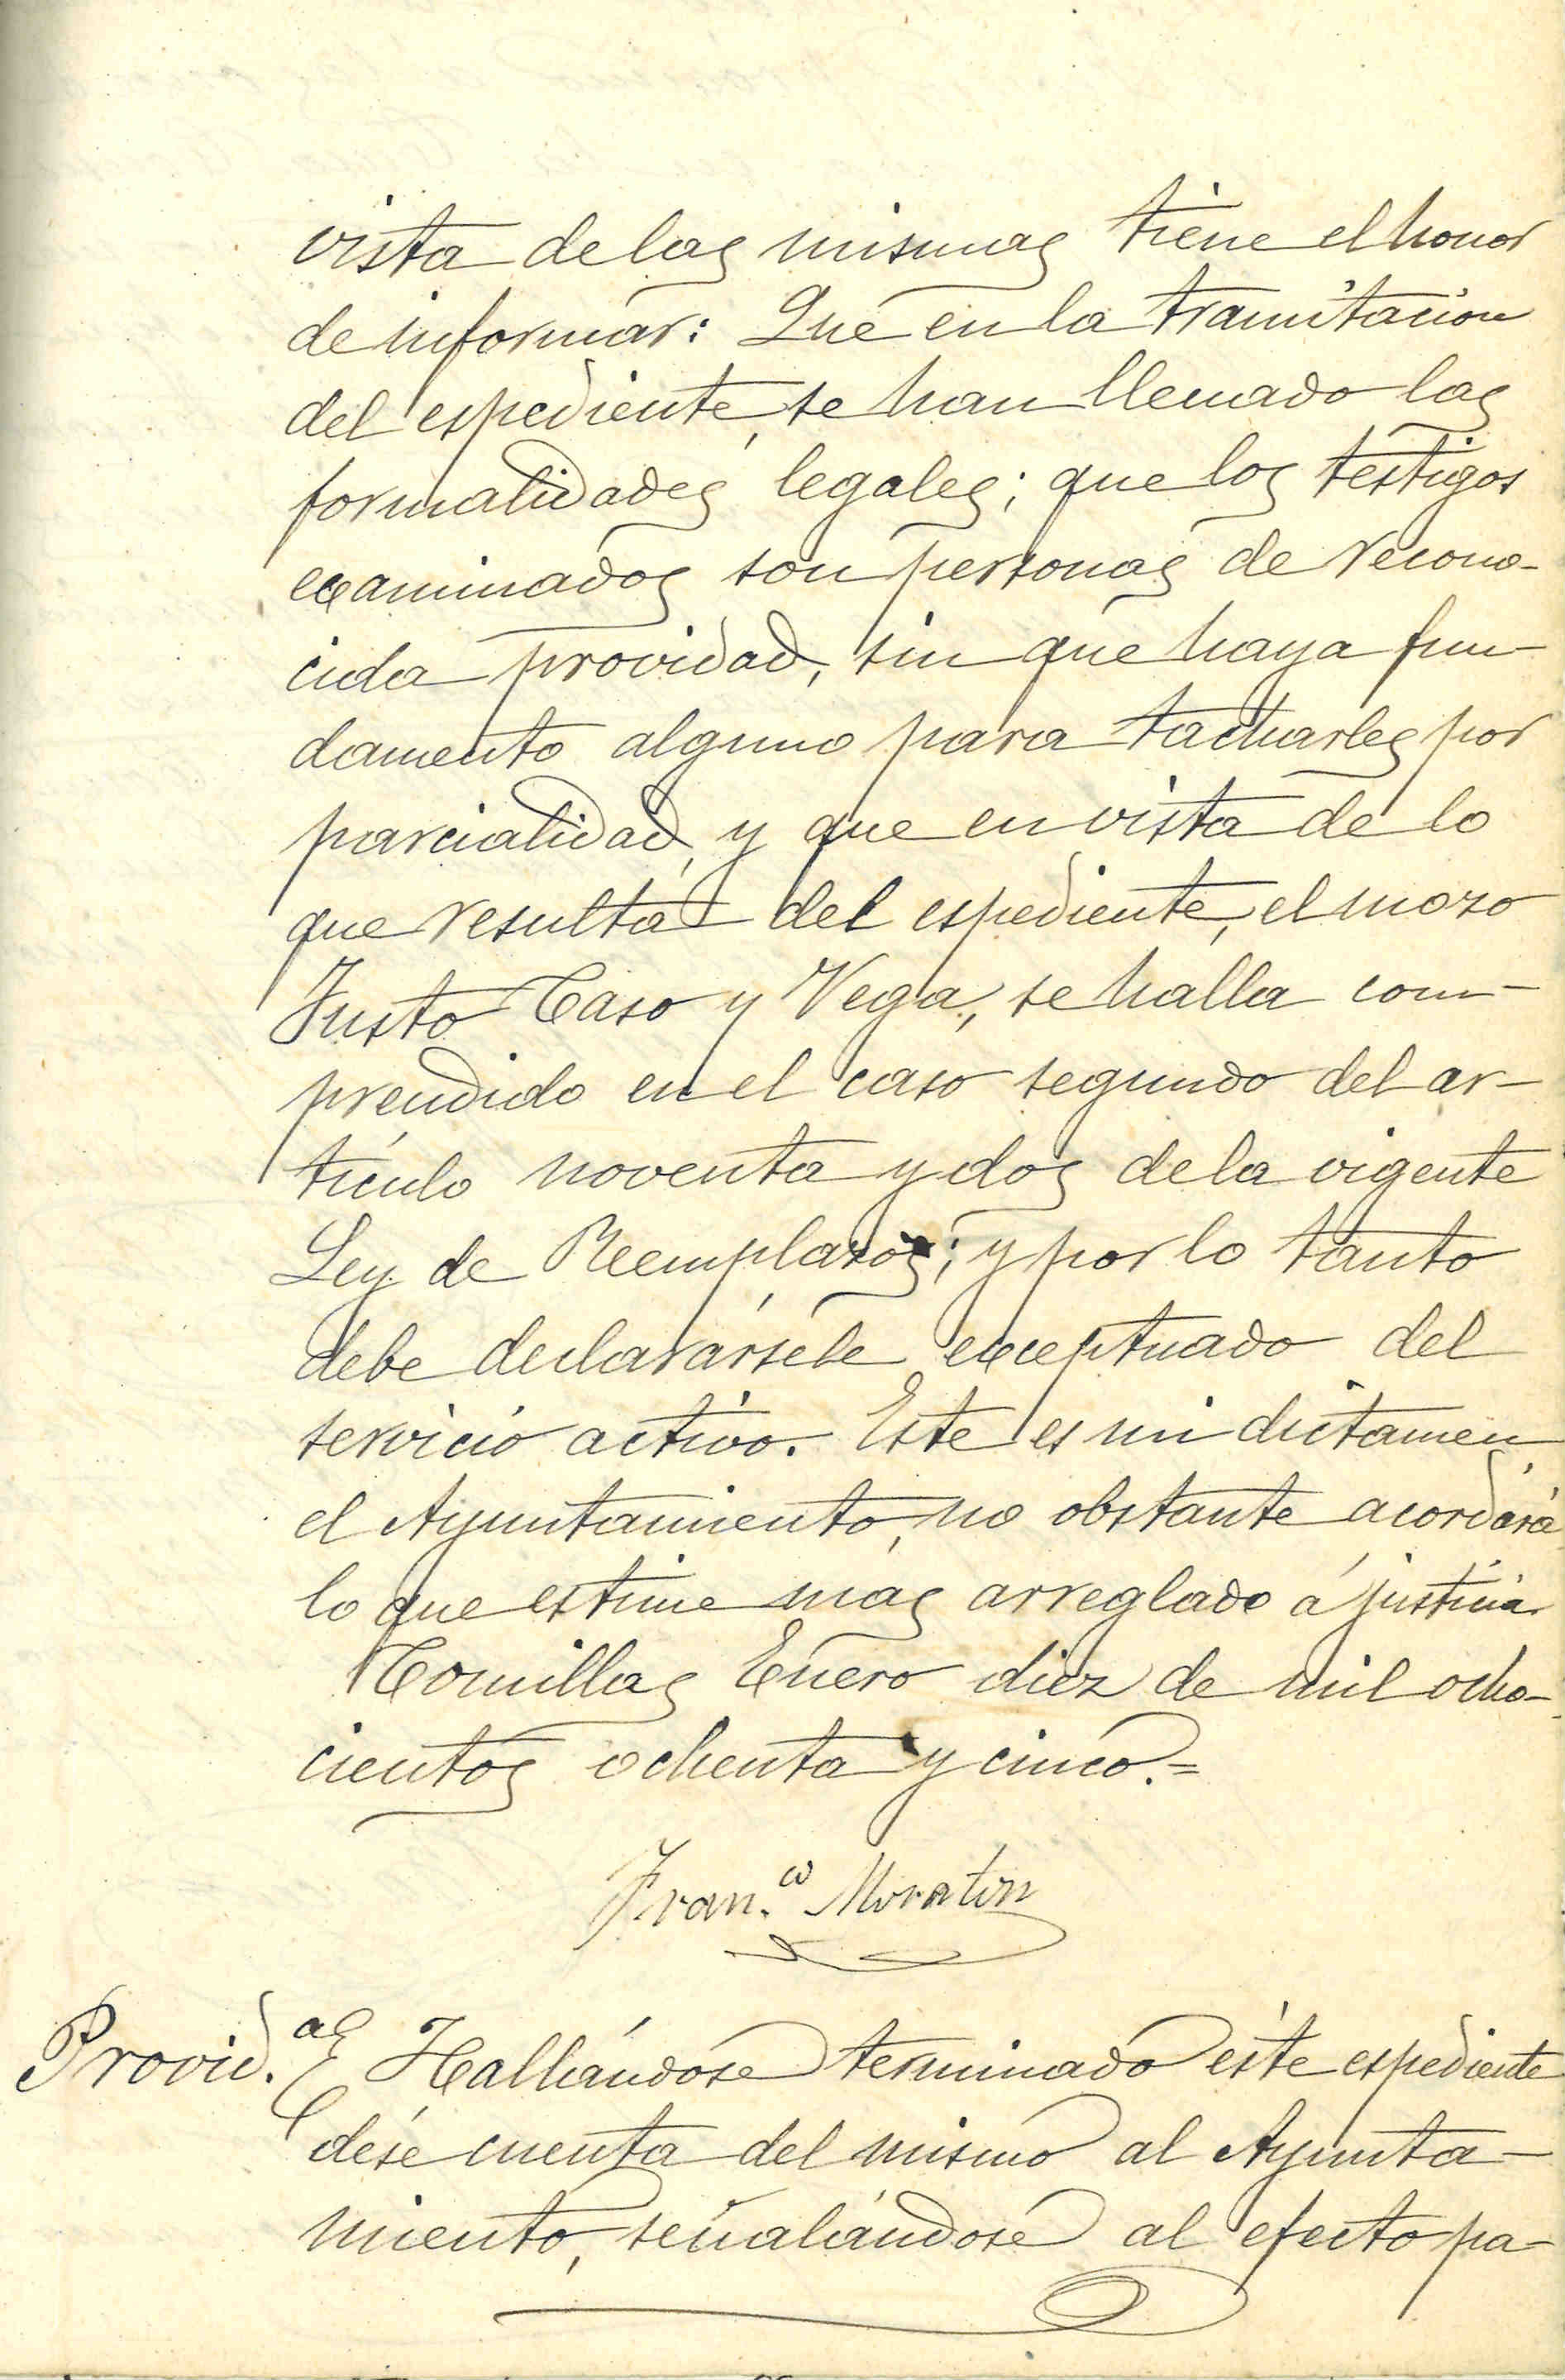 vista de las mismas tiene el honor
de informar: Que en la tramitacion
del espediente, se han llenado las
formalidades legales; que los testigos
examinados son personas de recono-
cida providad, sin que haya fun-
damento alguno para tacharles por
parcialidad, y que en vista de lo
que resulta del espediente, el mozo
Justo Caso y Vega, se halla com-
prendido en el caso segundo del ar-
tículo noventa y dos de la vigente
Ley de Reemplazos; y por lo tanto
debe declarársele exceptuado del
servicio activo. Este es mi dictamen
el Ayuntamiento, no obstante acordará
lo que estime mas arreglado á justicia.
Comillas Enero diez de mil ocho-
cientos ochenta y cinco.=
Fran.co Moraton
Provid.a Hallándose terminado este espediente
dése cuenta del mismo al Ayunta-
miento, señalándose al efecto pa-